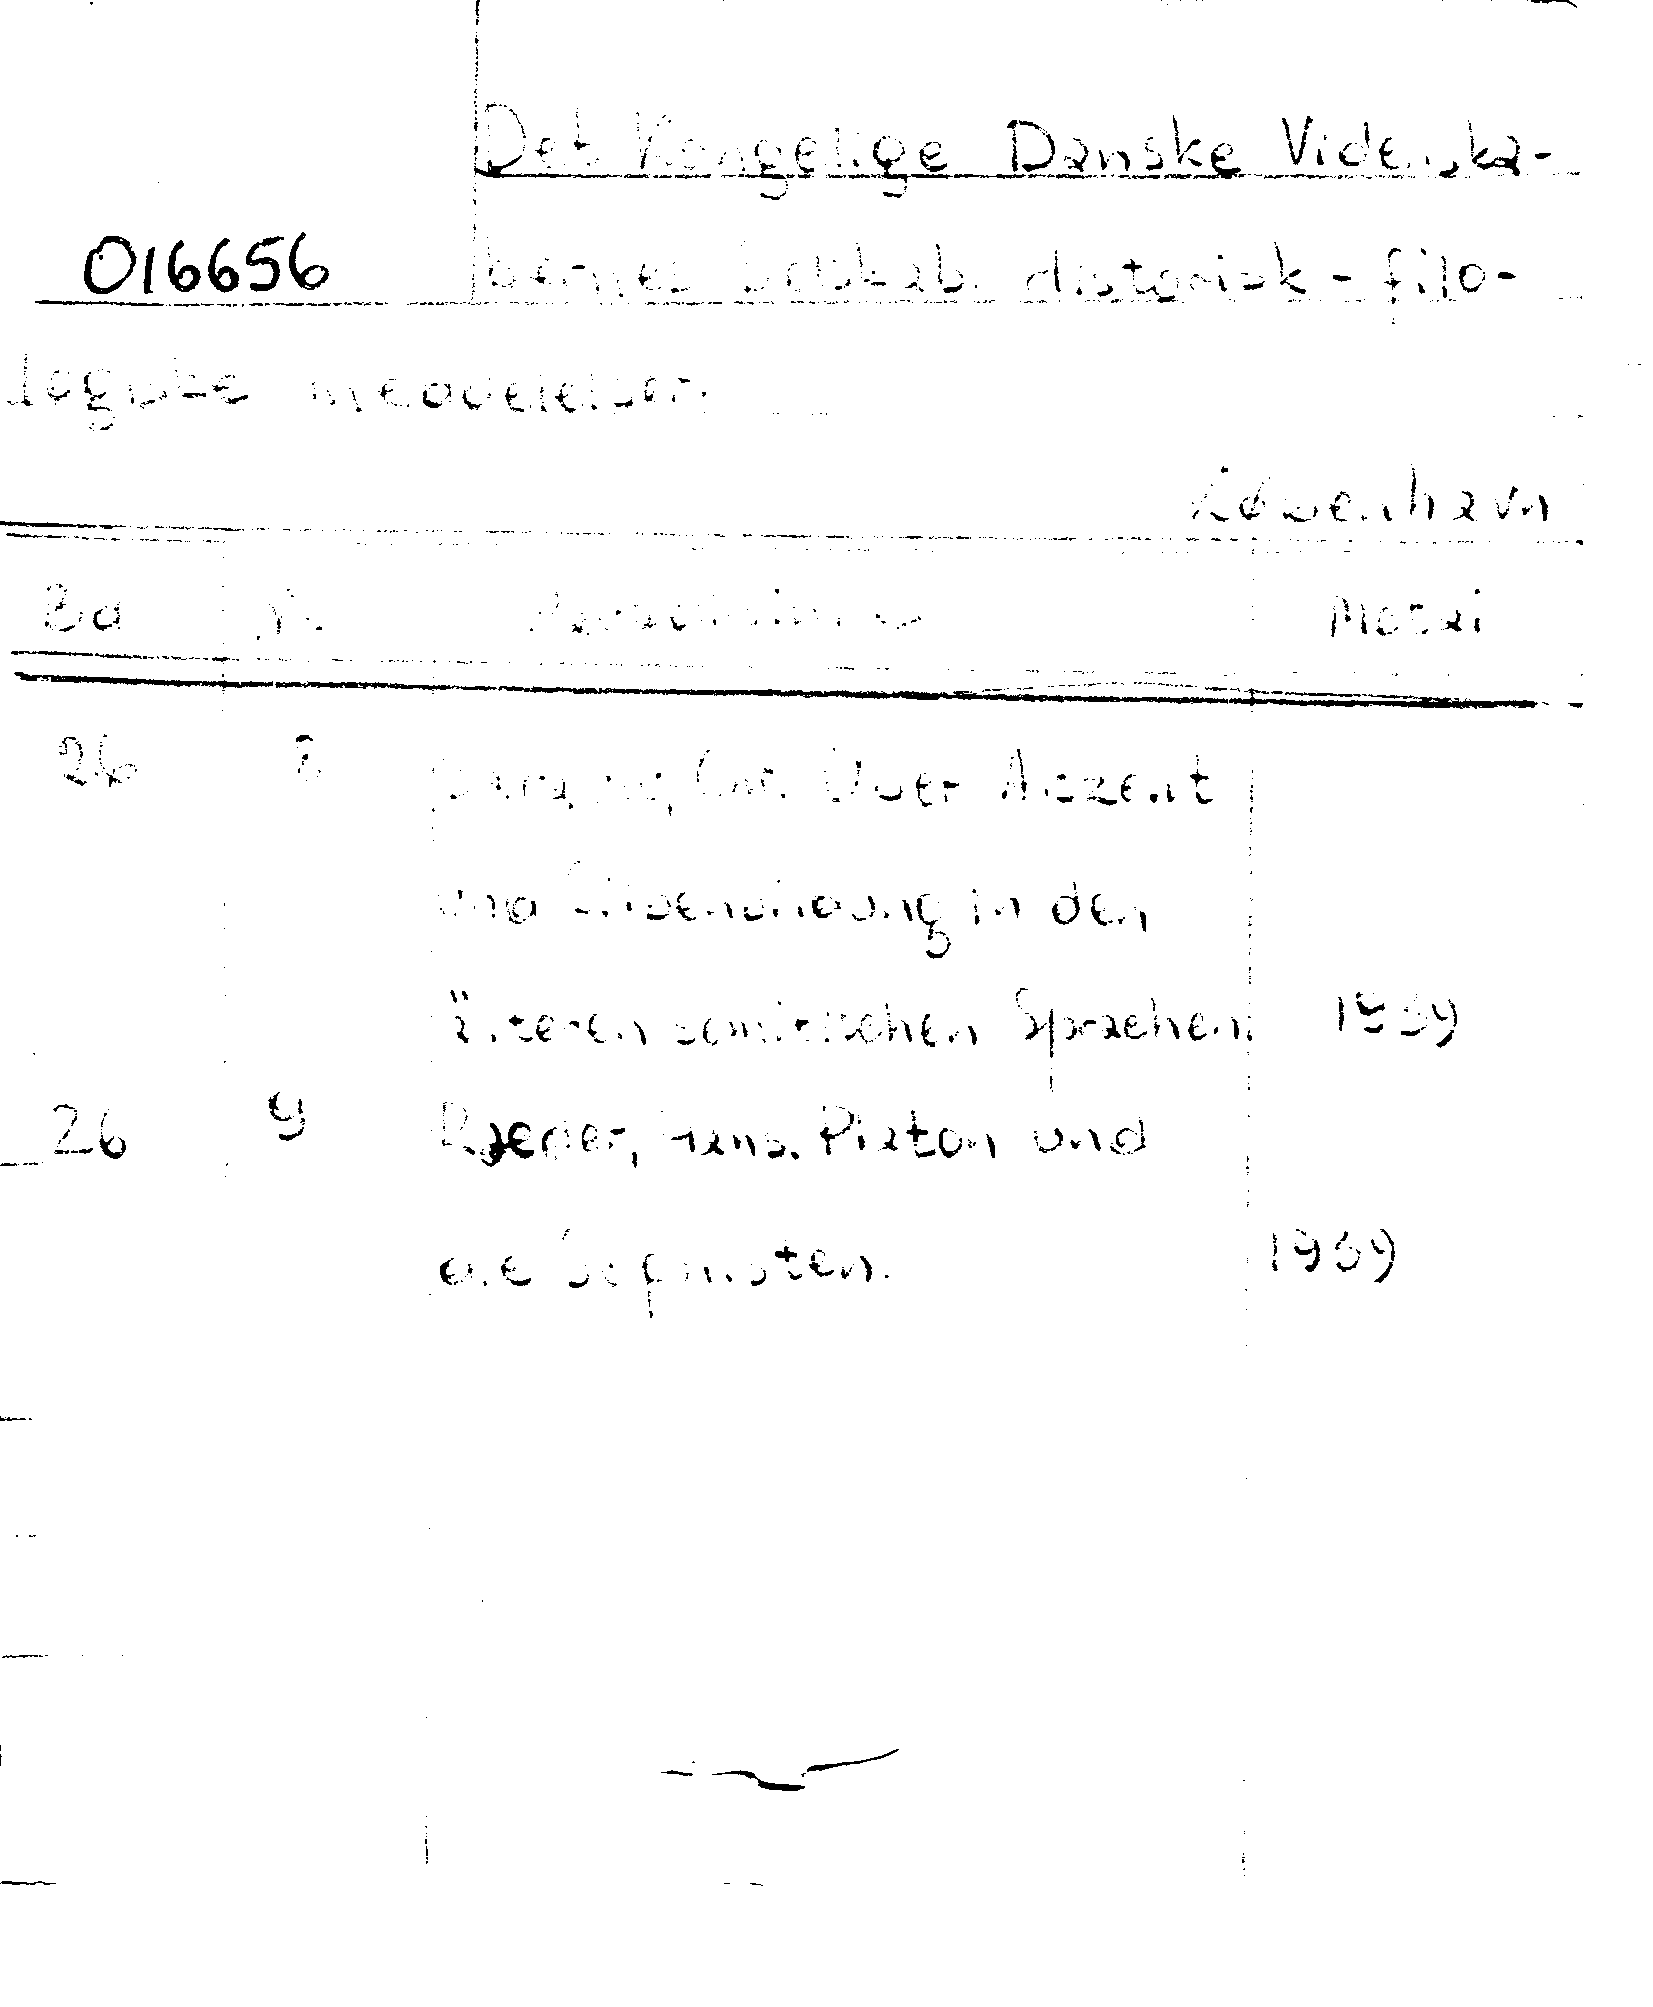 Det Kongelige Danske Videnska-
016656
bernes Selskab. Historisk-filo-
logiske meddelelser.
København
Bd Nr.
26 8 Sarauw, Chr. Über Akzent
und Silbenbildung in den
älteren semitischen Sprachen. 1939
26 9 Raeder, Hans. Platon und
die Sophisten. 1939